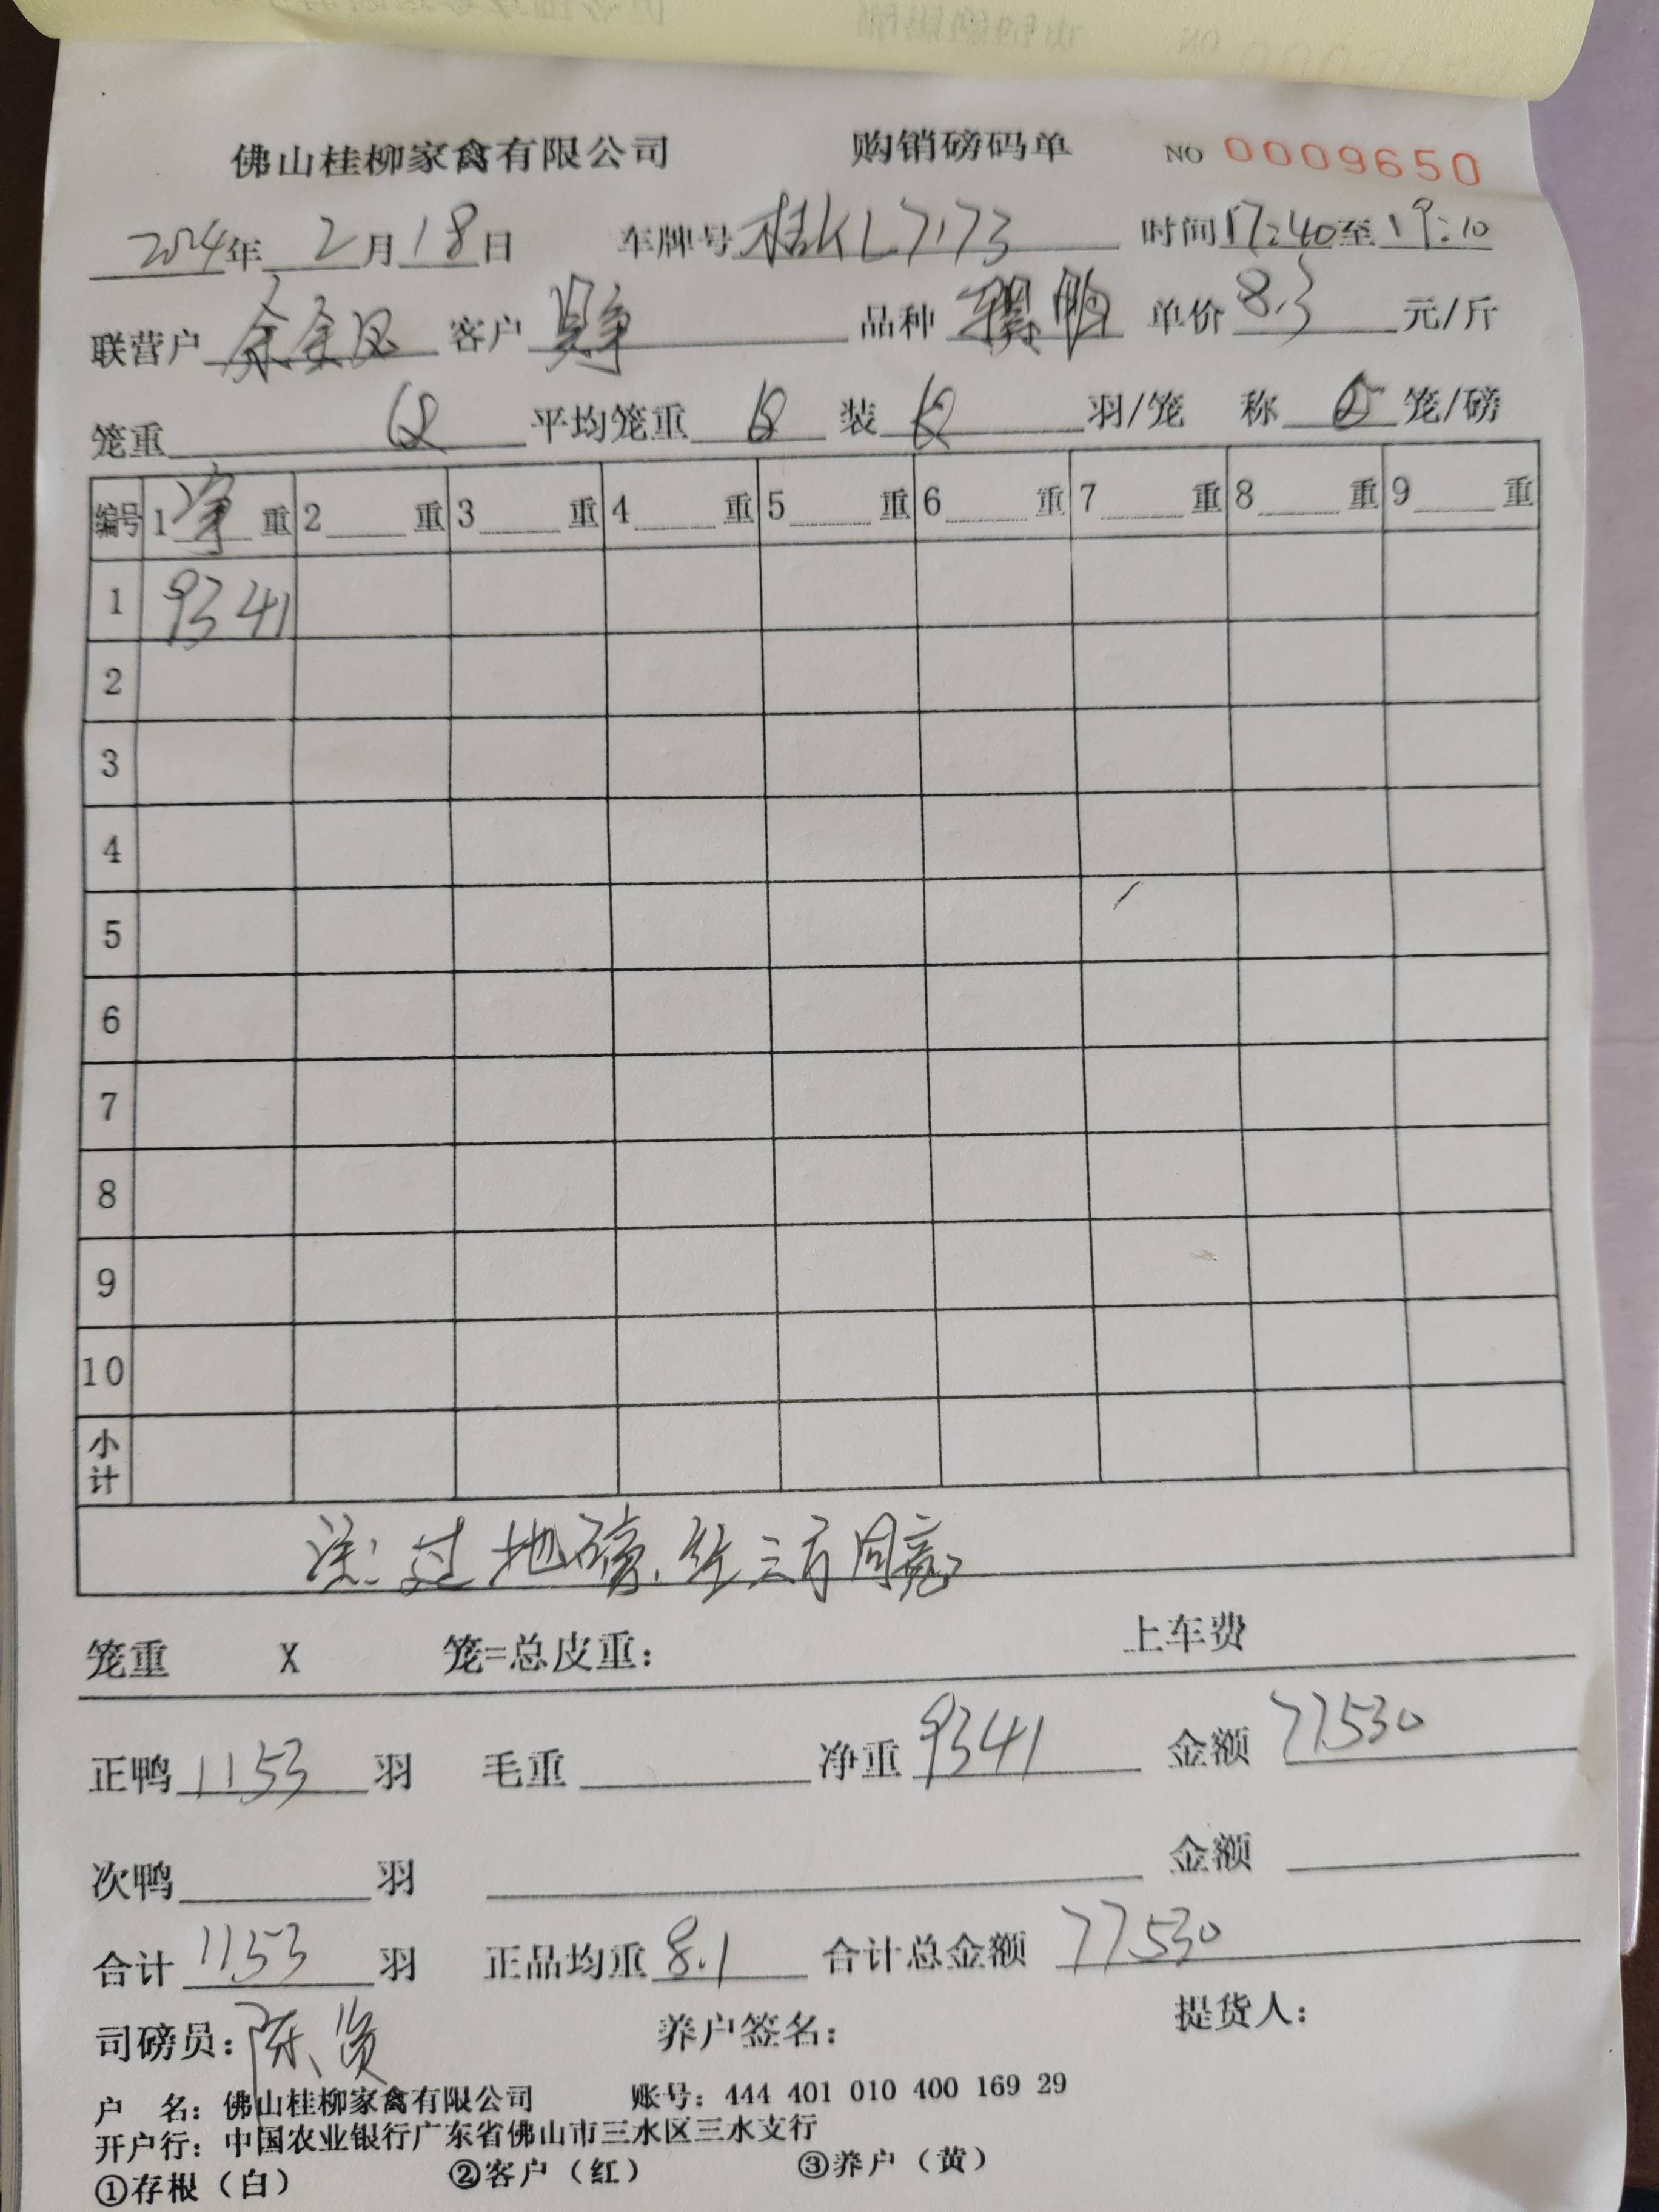 佛山桂柳家禽有限公司 购销磅码单 NO 0009650
2024年 2月18日 车牌号 桂KL7173 时间17:40至19:10
联营户 客户 品种 鸭 单价 8.3 元/斤
笼重 平均笼重 装 羽/笼 称 笼/磅
编号 1 净 重 2 重 3 重 4 重 5 重 6 重 7 重 8 重 9 重
1 9341
2
3
4
5
6
7
8
9
10
小计
注:过地磅.经三方同意
笼重 X 笼=总皮重: 上车费
正鸭 1153 羽 毛重 净重 9341 金额 77530
次鸭 羽 金额
合计 1153 羽 正品均重 8.1 合计总金额 77530
司磅员: 陈 养户签名: 提货人:
户 名: 佛山桂柳家禽有限公司 账号: 444 401 010 400 169 29
开户行: 中国农业银行广东省佛山市三水区三水支行
①存根(白) ②客户(红) ③养户(黄)